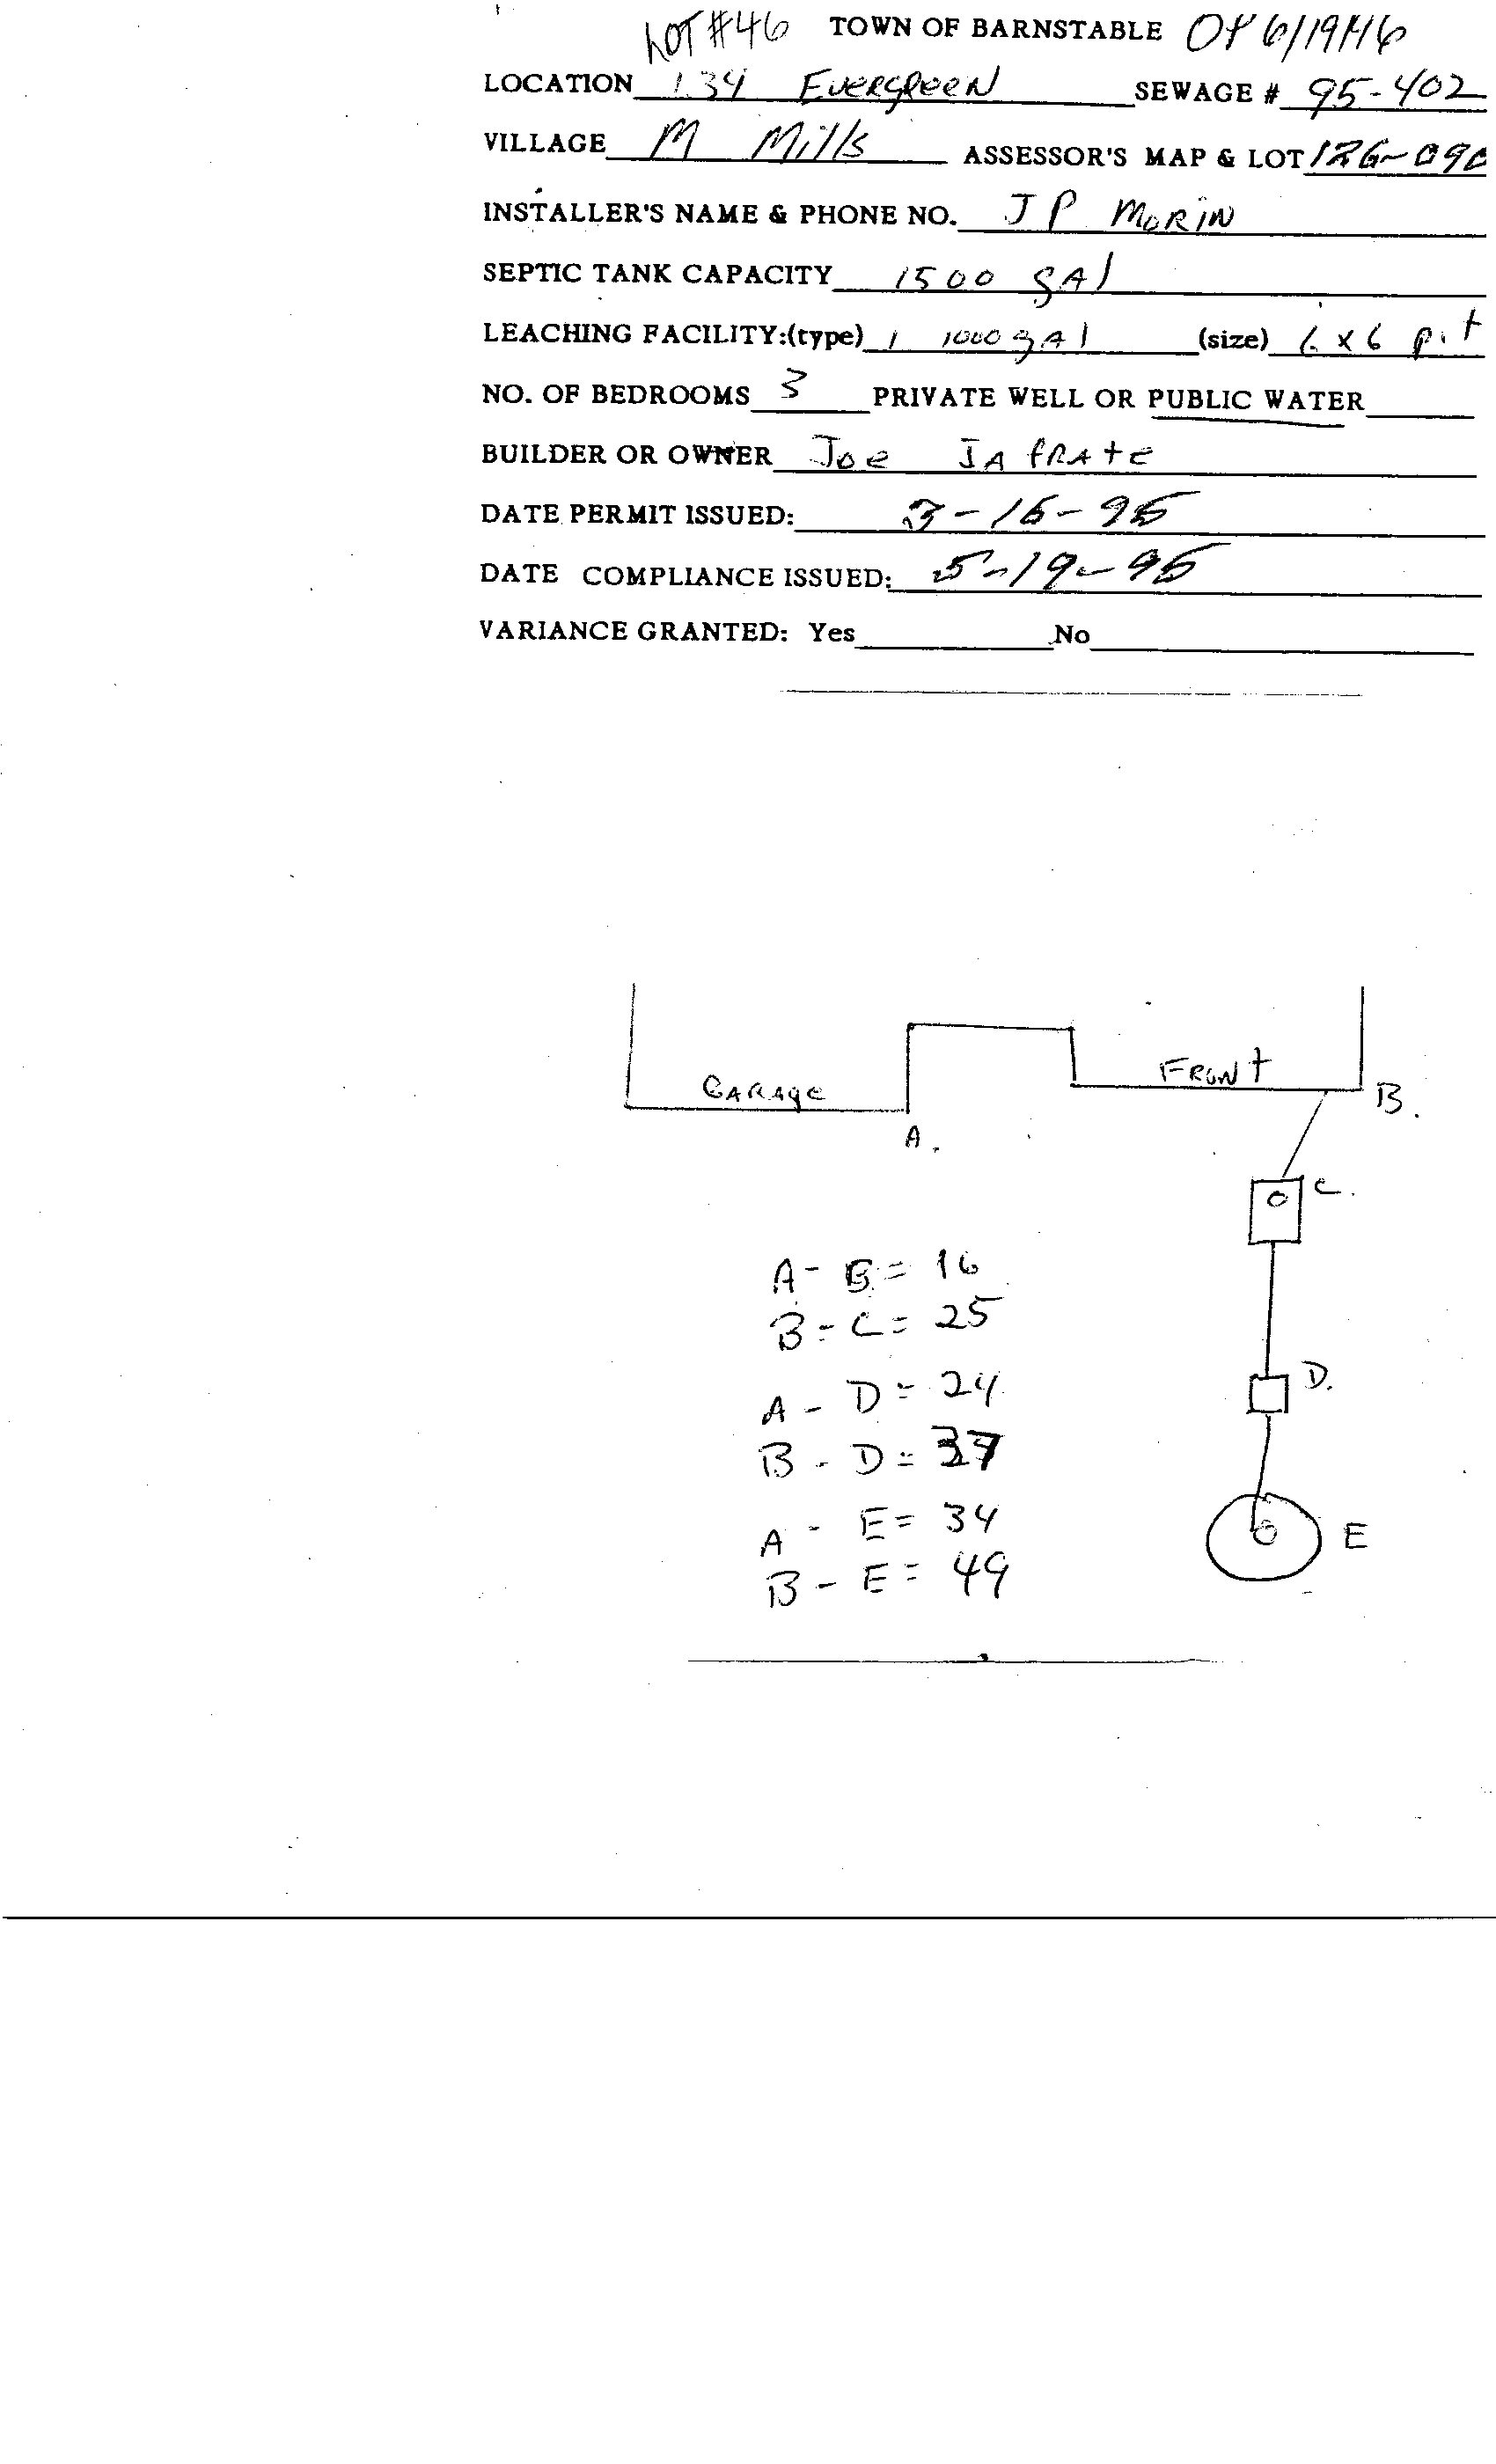 LOT #46 TOWN OF BARNSTABLE 6/19/16
LOCATION 134 EveRgReeN SEWAGE # 95-402
VILLAGE M Mills ASSESSOR'S MAP & LOT 126-090
INSTALLER'S NAME & PHONE NO. JP MoRiN
SEPTIC TANK CAPACITY 1500 gAl
LEACHING FACILITY:(type) 1 1000 gAl (size) 6 x 6 pit
NO. OF BEDROOMS 3 PRIVATE WELL OR PUBLIC WATER
BUILDER OR OWNER Joe JAfRAte
DATE PERMIT ISSUED: 3-16-95
DATE COMPLIANCE ISSUED: 5-19-95
VARIANCE GRANTED: Yes No
GARAge
FRONt
A.
B.
C.
A - B = 16
B - C = 25
A - D = 24
D.
B - D = 37
A - E = 34
E
B - E = 49